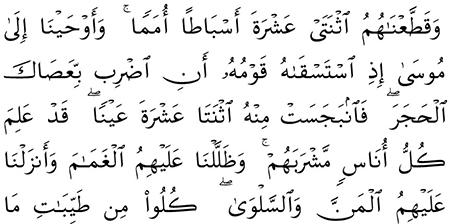 وَقَطَّعْنَٰهُمُ ٱثْنَتَىْ عَشْرَةَ أَسْبَاطًا أُمَمًا ۚ وَأَوْحَيْنَآ إِلَىٰ
مُوسَىٰٓ إِذِ ٱسْتَسْقَىٰهُ قَوْمُهُۥٓ أَنِ ٱضْرِب بِّعَصَاكَ
ٱلْحَجَرَ ۖ فَٱنۢبَجَسَتْ مِنْهُ ٱثْنَتَا عَشْرَةَ عَيْنًا ۖ قَدْ عَلِمَ
كُلُّ أُنَاسٍ مَّشْرَبَهُمْ ۚ وَظَلَّلْنَا عَلَيْهِمُ ٱلْغَمَٰمَ وَأَنزَلْنَا
عَلَيْهِمُ ٱلْمَنَّ وَٱلسَّلْوَىٰ ۖ كُلُوا۟ مِن طَيِّبَٰتِ مَا